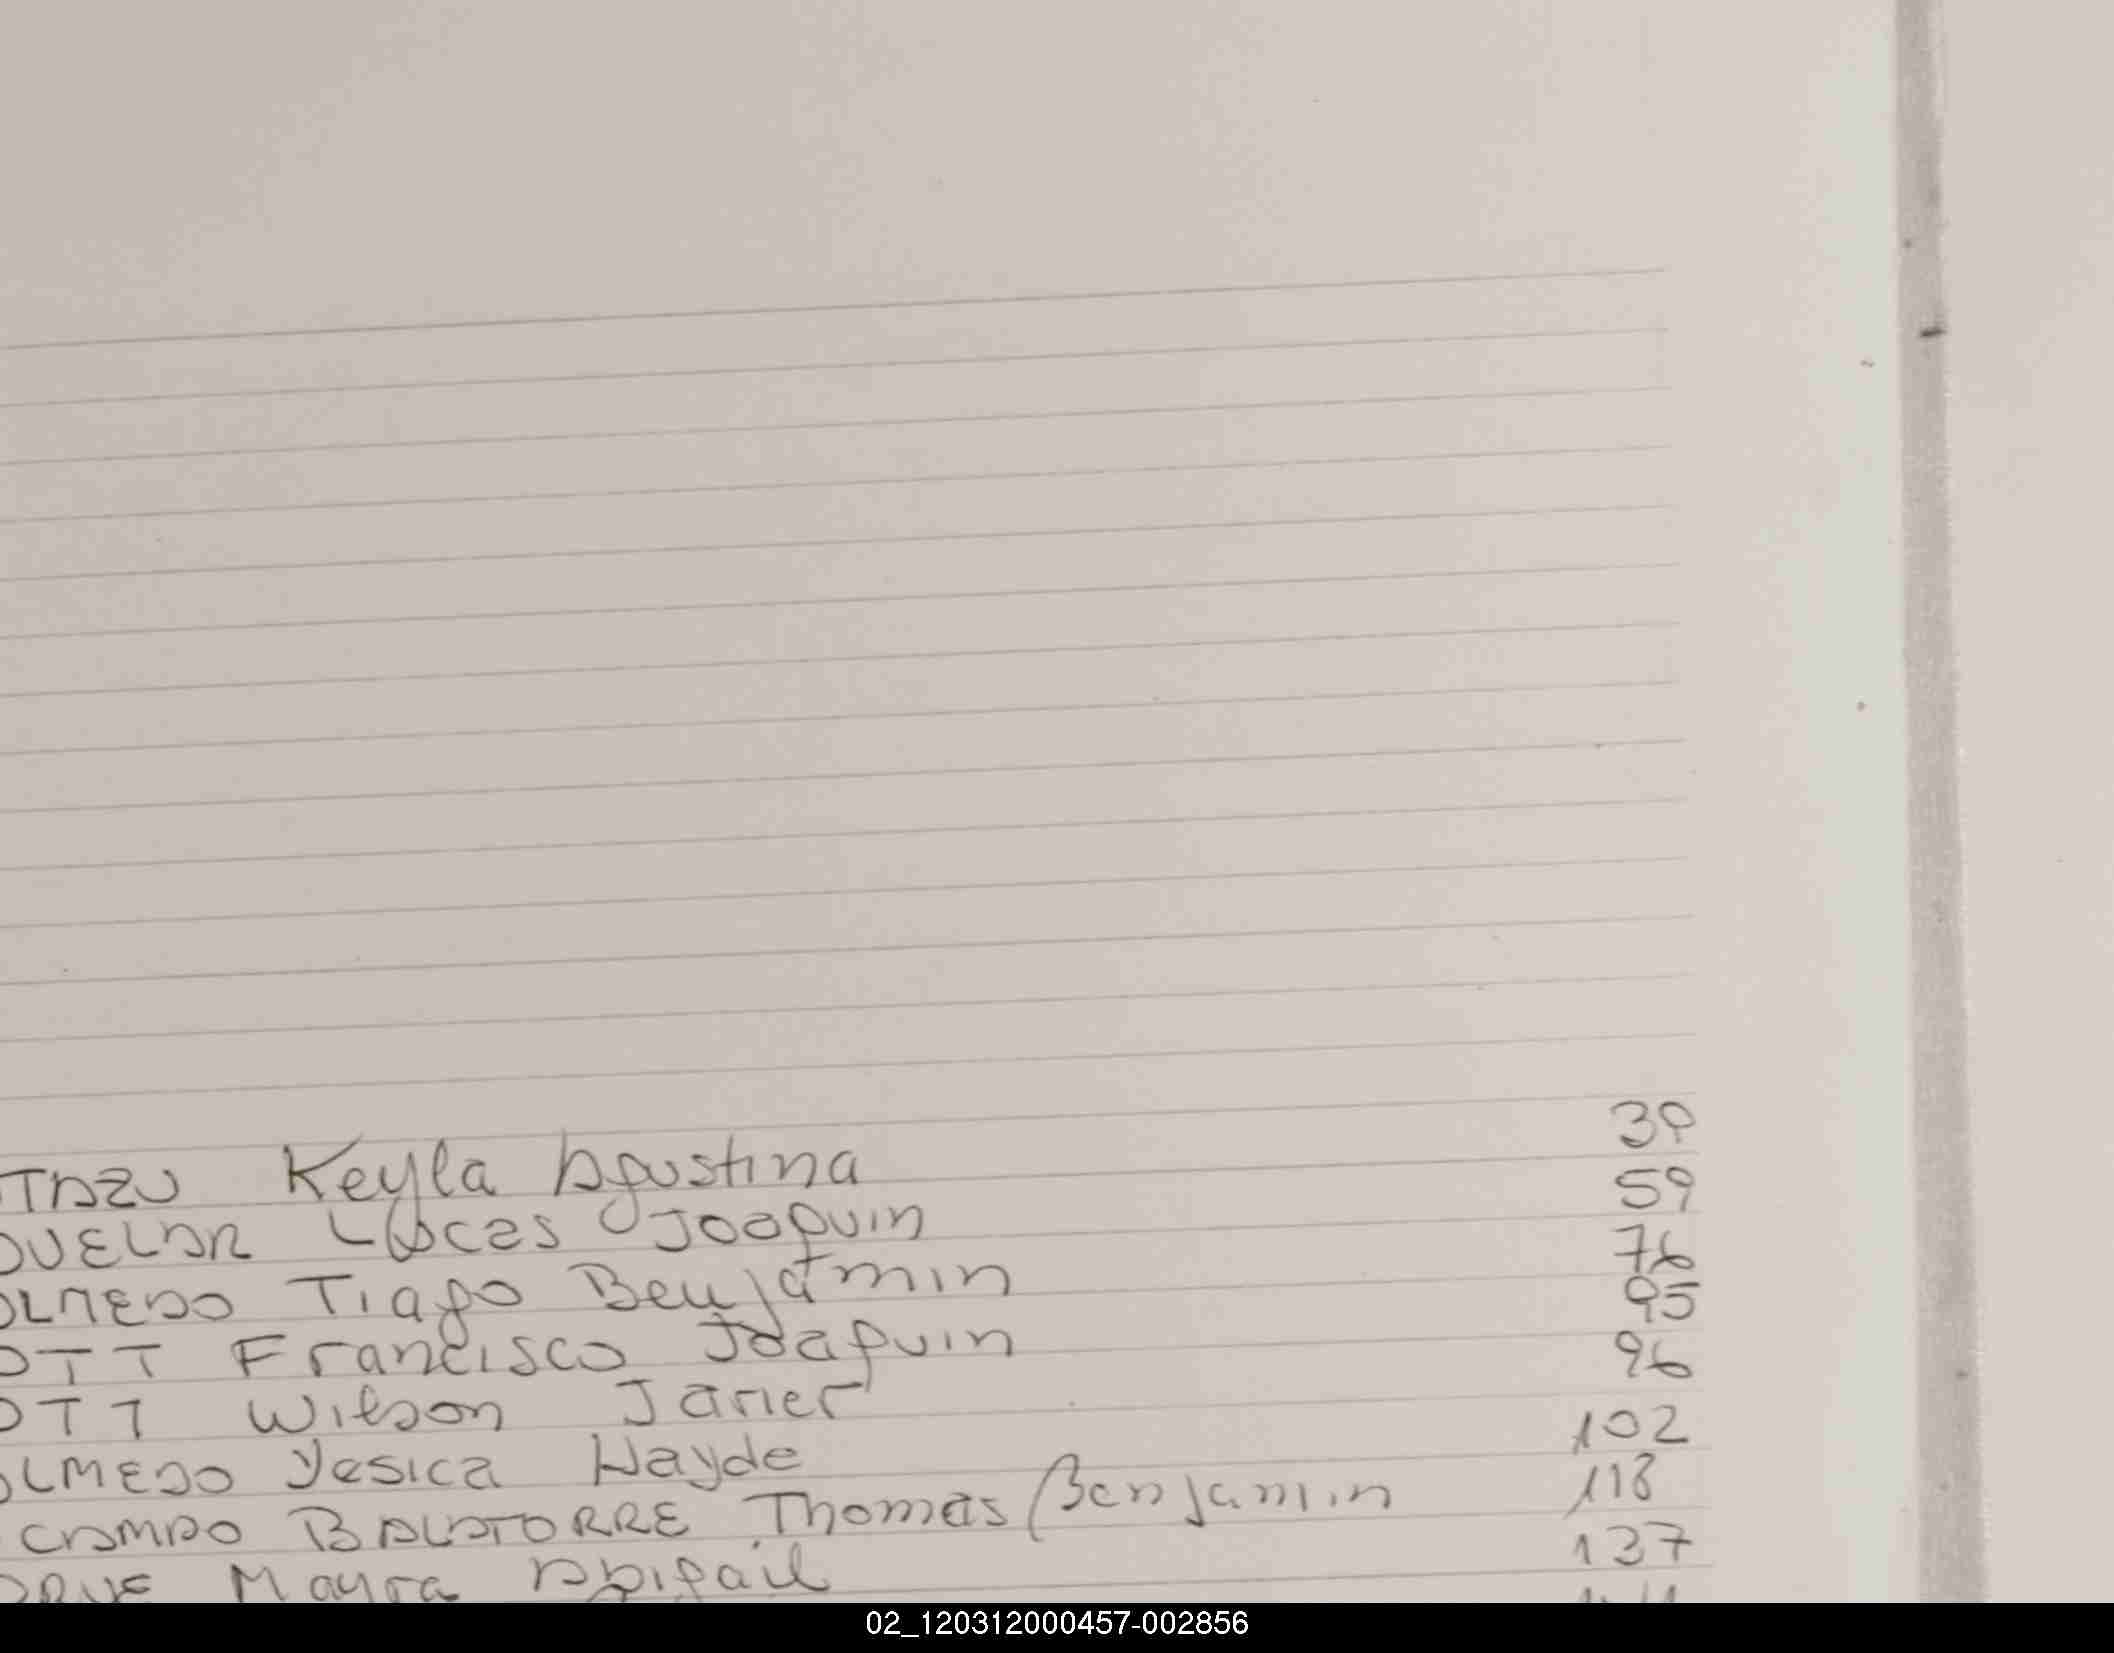 TAZU Keyla Agustina 39
OVELAR Lucas Joaquin 59
OLMEDO Tiago Benjamin 76
OTT Francisco Joaquin 95
OTT Wilson Javier 96
OLMEDO Yesica Hayde 102
OCAMPO BALATORRE Thomas Benjamin 118
Mayra Abigail 137
02_120312000457-002856